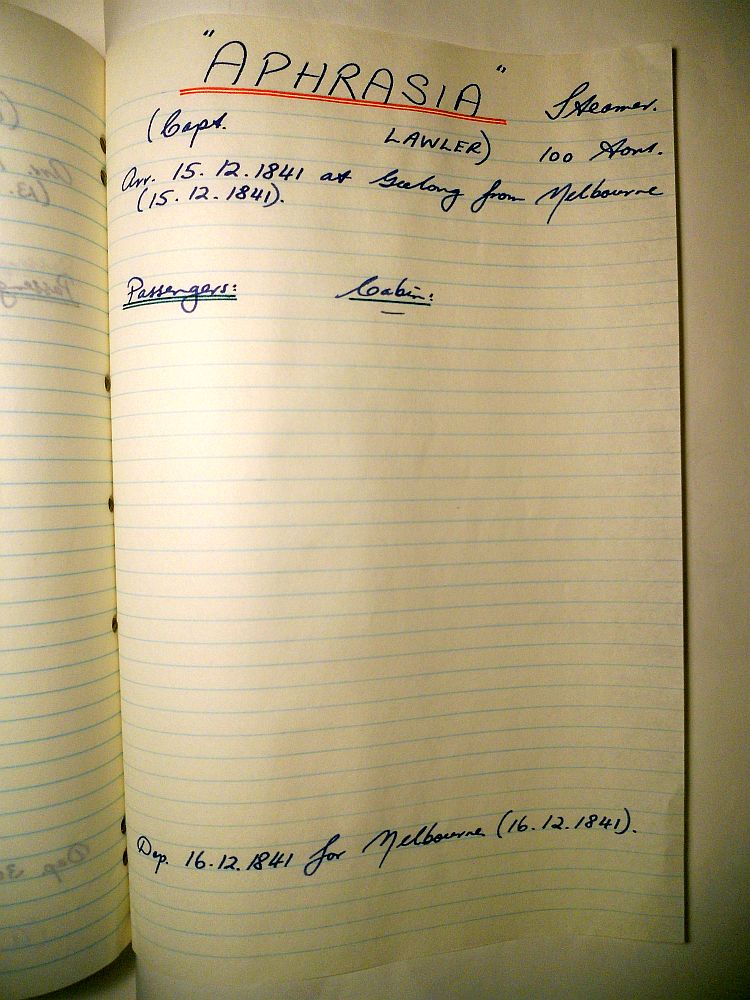 "APHRASIA" Steamer.
(Capt. LAWLER) 100 tons.
Arr. 15.12.1841 at Geelong from Melbourne
(15.12.1841).
Passengers: Cabin:
—
Dep. 16.12.1841 for Melbourne (16.12.1841).